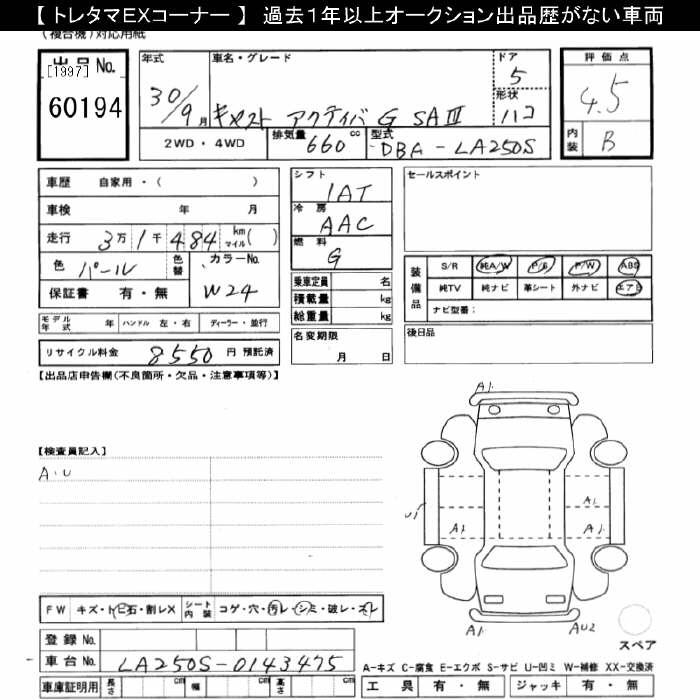 【 トレタマＥＸコーナー 】 過去１年以上オークション出品歴がない車両
(複合機)対応用紙
出品No.
[1997]
60194
年式
30/9月
車名・グレード
キャスト アクティバ G SAⅢ
ドア
5
形状
ハコ
2WD ・ 4WD
排気量
660 cc
型式
DBA-LA250S
評価点
4.5
内装
B
車歴 自家用・( )
車検 年 月
走行 3万1千484 km マイル( )
色 パール
色替
カラーNo.
W24
保証書 有・無
シフト
1AT
冷房
AAC
燃料
G
乗車定員 名
積載量 kg
総重量 kg
セールスポイント
装備品
S/R 純A/W P/S P/W ABS
純TV 純ナビ 革シート 外ナビ エアB
ナビ型番:
モデル年式 年
ハンドル 左・右
ディーラー・並行
名変期限
月 日
後日品
リサイクル料金 8550 円 預託済
【出品店申告欄(不良箇所・欠品・注意事項等)】
【検査員記入】
A.U
A1.
U1
A1
A1.
A1.
A1.
AU2
スペア
FW キズ・トビ石・割レX
シート内装
コゲ・穴・汚レ・シミ・破レ・ズレ
登録No.
車台No. LA250S-0143475
車庫証明用
長さ cm
幅 cm
高さ cm
A-キズ C-腐食 E-エクボ S-サビ U-凹ミ W-補修 XX-交換済
工具 有・無
ジャッキ 有・無